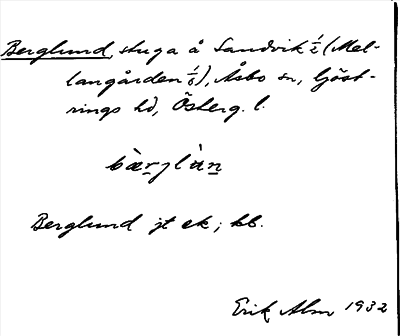 Berglund, stuga å Sandvik 1/2 (Mel-
langården 1/6), Åsbo sn, Göst-
rings hd, Österg. l.
bærjlùn
Berglund jt ek; kb.
Erik Alm 1932